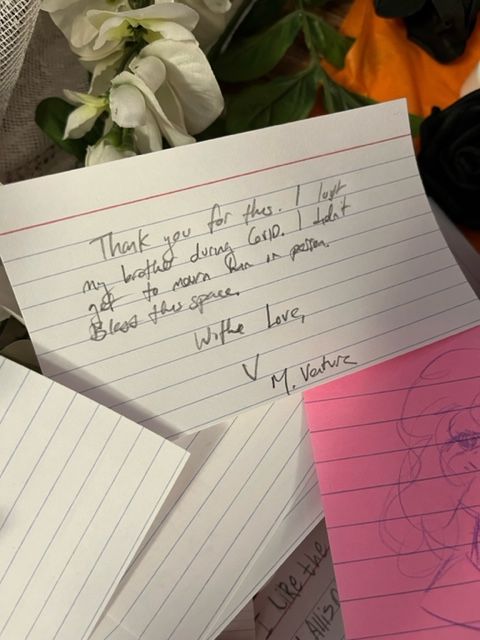 Thank you for this. I lost
my brother during Covid. I didn't
get to mourn him in person.
Bless this space.
Withe Love,
V
M. Ventura
I LIKE the
Allise